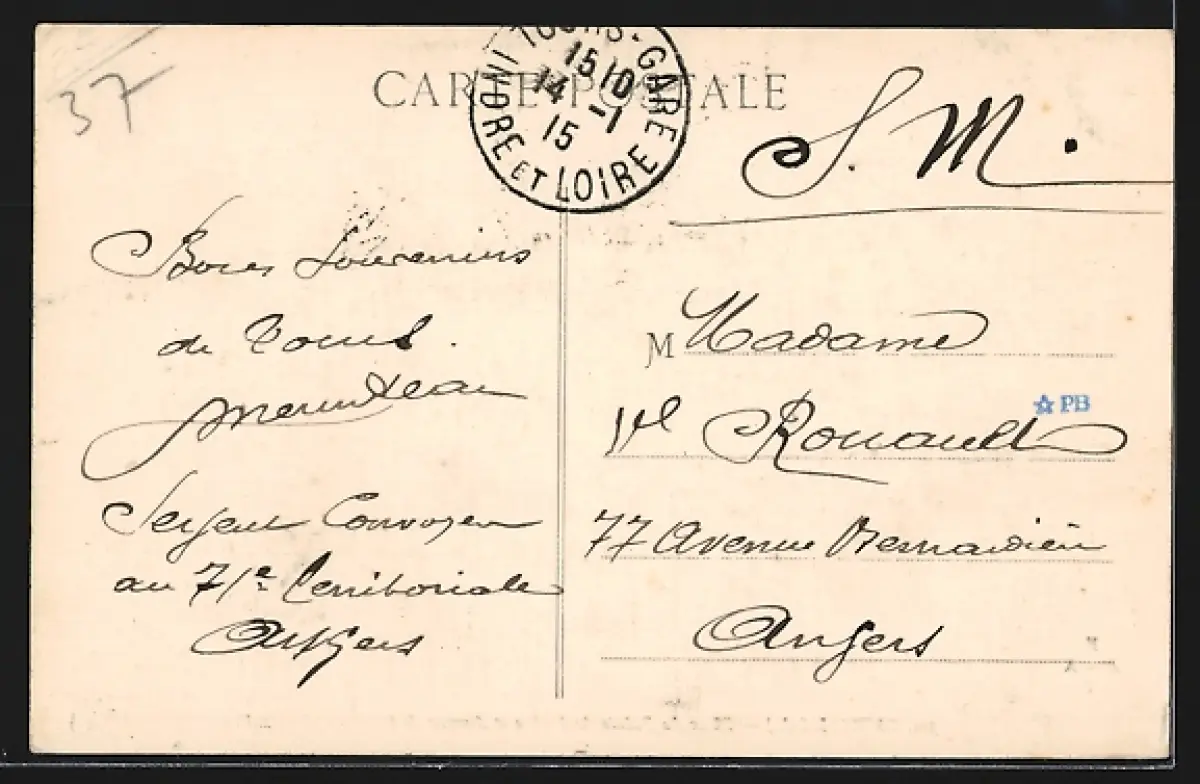 37
CARTE POSTALE
TOURS-GARE
15 10
14 -1
15
INDRE ET LOIRE
S. M.
Bons Souvenirs
de Tours.
Sergent Convoyeur
au 71e Territoriale
Angers
M Madame
Vve Rouault
PB
77 Avenue
Angers